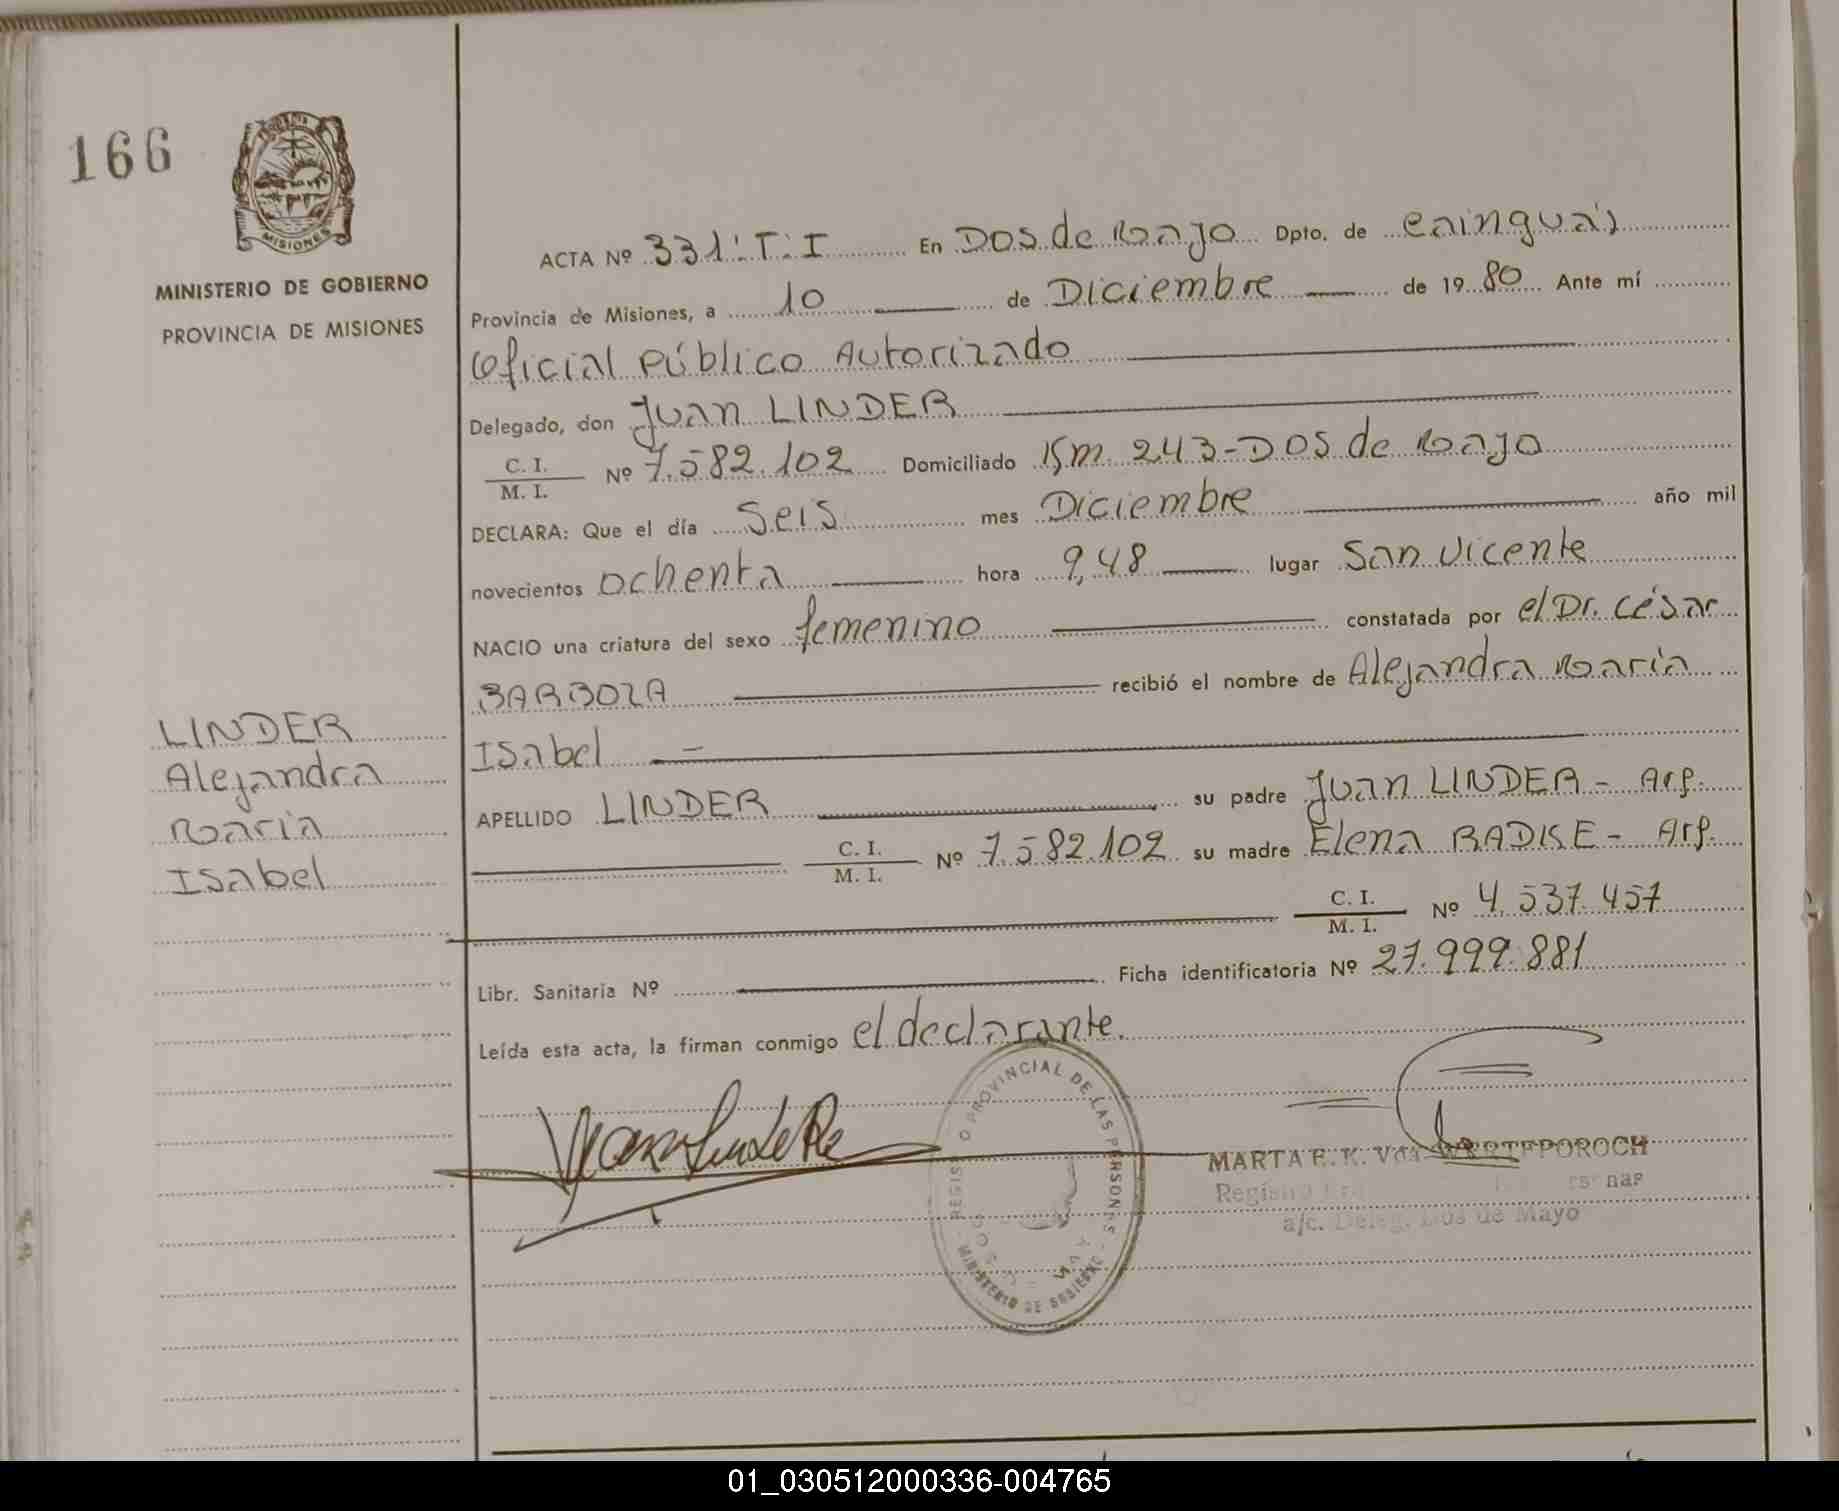 166
MISIONES
MINISTERIO DE GOBIERNO
PROVINCIA DE MISIONES
ACTA Nº 331:T:I En Dos de Mayo Dpto. de Cainguás
Provincia de Misiones, a 10 de Diciembre de 1980 Ante mí
Oficial Público Autorizado
Delegado, don Juan LINDER
C. I.
M. I.
Nº 7.582.102 Domiciliado Km. 243-Dos de Mayo
DECLARA: Que el día Seis mes Diciembre año mil
novecientos ochenta hora 9,48 lugar San Vicente
NACIO una criatura del sexo femenino constatada por el Dr. César
BARBOZA recibió el nombre de Alejandra María
Isabel
APELLIDO LINDER su padre Juan LINDER - Arg.
C. I.
M. I.
Nº 7.582.102 su madre Elena RADKE - Arg.
C. I.
M. I.
Nº 4.537.457
Libr. Sanitaria Nº Ficha identificatoria Nº 27.999.881
Leída esta acta, la firman conmigo el declarante.
LINDER
Alejandra
María
Isabel
PROVINCIAL DE LAS PERSONAS
MINISTERIO DE GOBIERNO
MARTA E. K. Vda
a/c. Deleg. Dos de Mayo
01_030512000336-004765